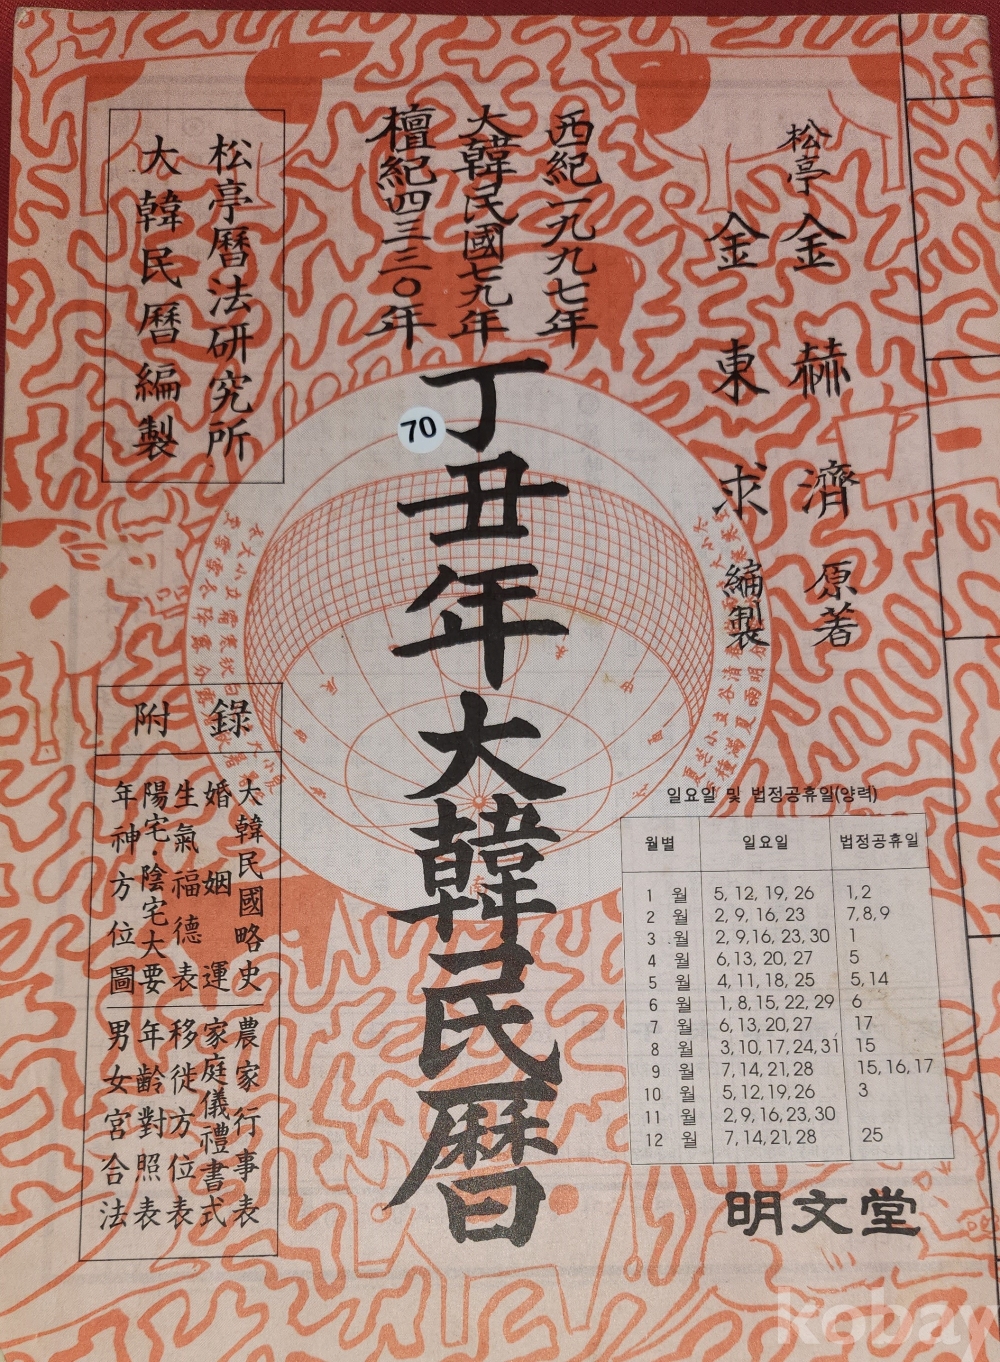 松亭 金赫濟 原著
金東求 編製
西紀一九九七年
大韓民國七九年
檀紀四三三〇年
丁丑年 大韓民曆
70
松亭曆法研究所
大韓民曆編製
附錄
大韓民國略史
婚姻運
生氣福德表
陽宅·陰宅大要
年神方位圖
農家行事表
家庭儀禮書式
移徙方位表
年齡對照表
男女宮合法
일요일 및 법정공휴일(양력)
월별 일요일 법정공휴일
1 월 5, 12, 19, 26 1, 2
2 월 2, 9, 16, 23 7, 8, 9
3 월 2, 9, 16, 23, 30 1
4 월 6, 13, 20, 27 5
5 월 4, 11, 18, 25 5, 14
6 월 1, 8, 15, 22, 29 6
7 월 6, 13, 20, 27 17
8 월 3, 10, 17, 24, 31 15
9 월 7, 14, 21, 28 15, 16, 17
10 월 5, 12, 19, 26 3
11 월 2, 9, 16, 23, 30
12 월 7, 14, 21, 28 25
明文堂
南
kobay